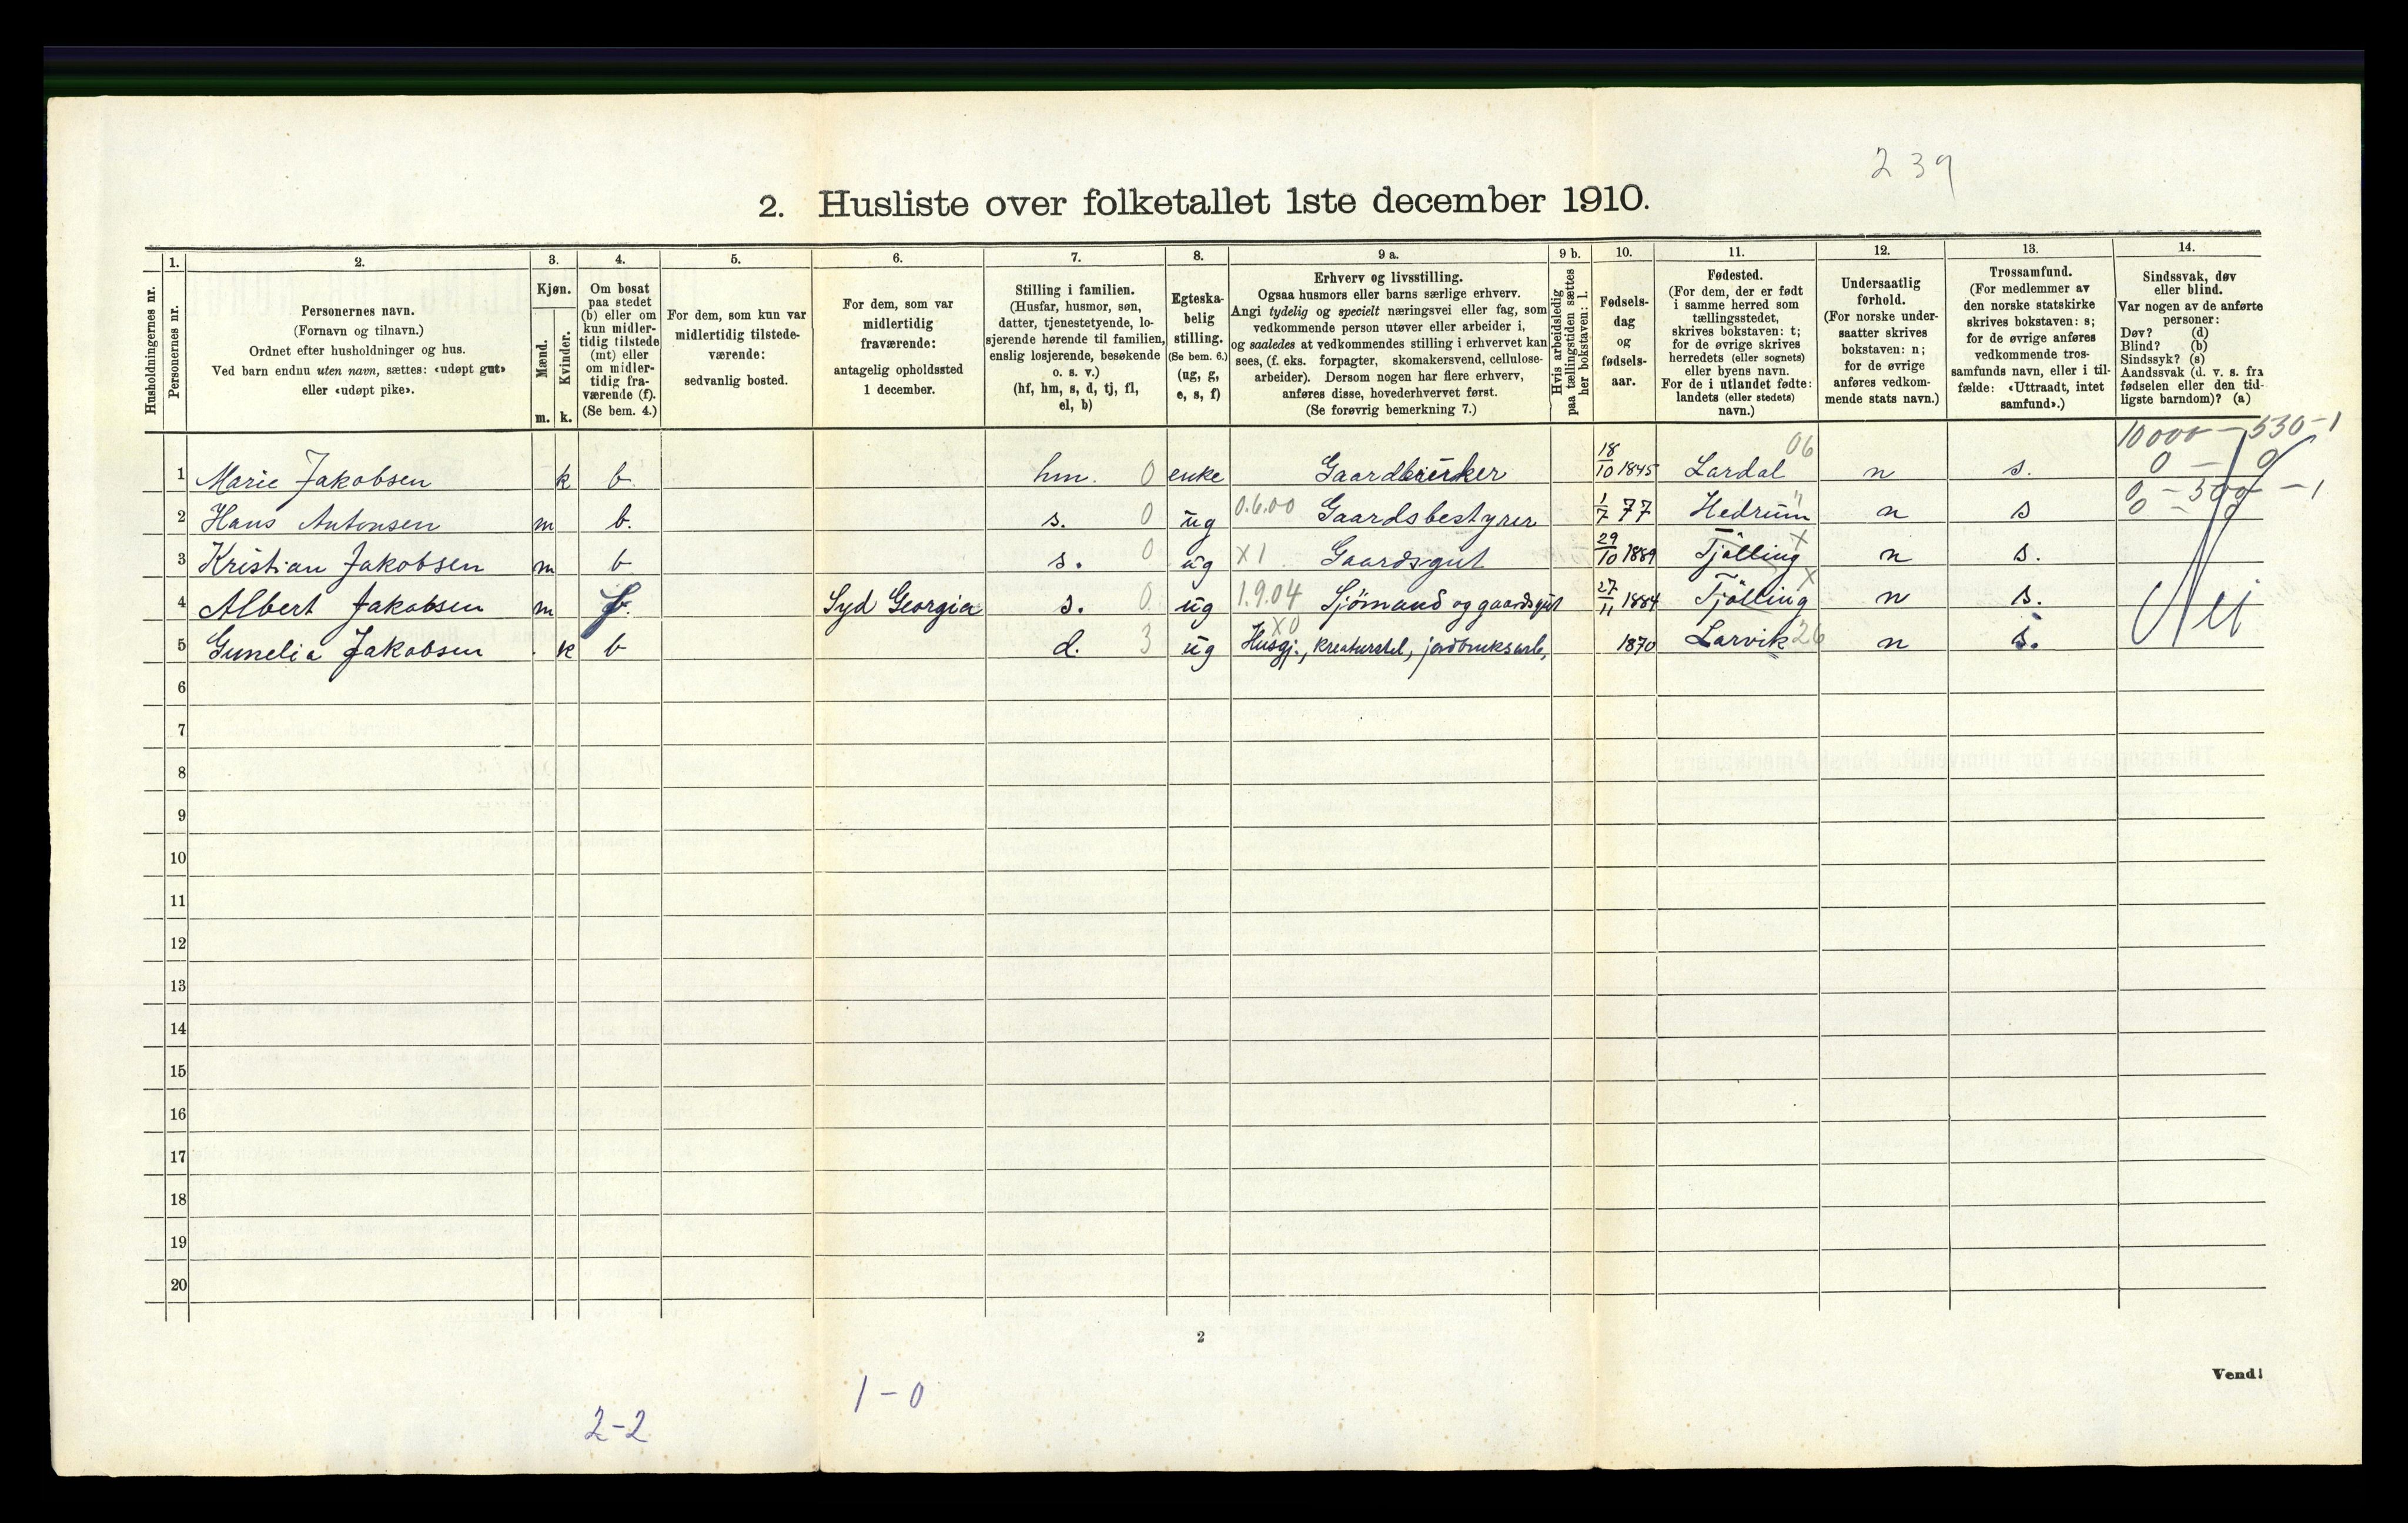 239
2. Husliste over folketallet 1ste december 1910.
Husholdningernes nr.
1.
Personernes nr.
2.
Personernes navn.
(Fornavn og tilnavn.)
Ordnet efter husholdninger og hus.
Ved barn endnu uten navn, sættes: «udøpt gut»
eller «udøpt pike».
3.
Kjøn.
Mænd.
Kvinder.
m. k.
4.
Om bosat
paa stedet
(b) eller om
kun midler-
tidig tilstede
(mt) eller
om midler-
tidig fra-
værende (f).
(Se bem. 4.)
5.
For dem, som kun var
midlertidig tilstede-
værende:
sedvanlig bosted.
6.
For dem, som var
midlertidig
fraværende:
antagelig opholdssted
1 december.
7.
Stilling i familien.
(Husfar, husmor, søn,
datter, tjenestetyende, lo-
sjerende hørende til familien,
enslig losjerende, besøkende
o. s. v.)
(hf, hm, s, d, tj, fl,
el, b)
8.
Egteska-
belig
stilling.
(Se bem. 6.)
(ug, g,
e, s, f)
9 a.
Erhverv og livsstilling.
Ogsaa husmors eller barns særlige erhverv.
Angi tydelig og specielt næringsvei eller fag, som
vedkommende person utøver eller arbeider i,
og saaledes at vedkommendes stilling i erhvervet kan
sees, (f. eks. forpagter, skomakersvend, cellulose-
arbeider). Dersom nogen har flere erhverv,
anføres disse, hovederhvervet først.
(Se forøvrig bemerkning 7.)
9 b.
Hvis arbeidsledig
paa tællingstiden sættes
her bokstaven: l.
10.
Fødsels-
dag
og
fødsels-
aar.
11.
Fødested.
(For dem, der er født
i samme herred som
tællingsstedet,
skrives bokstaven: t;
for de øvrige skrives
herredets (eller sognets)
eller byens navn.
For de i utlandet fødte:
landets (eller stedets)
navn.)
12.
Undersaatlig
forhold.
(For norske under-
saatter skrives
bokstaven: n;
for de øvrige
anføres vedkom-
mende stats navn.)
13.
Trossamfund.
(For medlemmer av
den norske statskirke
skrives bokstaven: s;
for de øvrige anføres
vedkommende tros-
samfunds navn, eller i til-
fælde: «Uttraadt, intet
samfund».)
14.
Sindssvak, døv
eller blind.
Var nogen av de anførte
personer:
Døv? (d)
Blind? (b)
Sindssyk? (s)
Aandssvak (d. v. s. fra
fødselen eller den tid-
ligste barndom)? (a)
10000 - 530 - 1
1 Marie Jakobsen k b hm. 0 enke Gaardbruker 18/10 1845 Lardal 06 n s. 0 - 0
2 Hans Antonsen m b. s. 0 ug 0.6.00 Gaardsbestyrer 1/7 77 Hedrum " n s 0 - 500 - 1
3 Kristian Jakobsen m b s. 0 ug X1 Gaardsgut 29/10 1889 Tjølling X n s.
4 Albert Jakobsen m f. Syd Georgia s. 0 ug 1.9.04 Sjömand og gaardsgut 27/11 1884 Tjølling X n s. Nei
5 Gunelia Jakobsen k b d. 3 ug X0 Husgj., kreaturstel, jordbruksarb, 1870 Larvik 26 n s.
6
7
8
9
10
11
12
13
14
15
16
17
18
19
20
2
Vend!
1 - 0
2 - 2